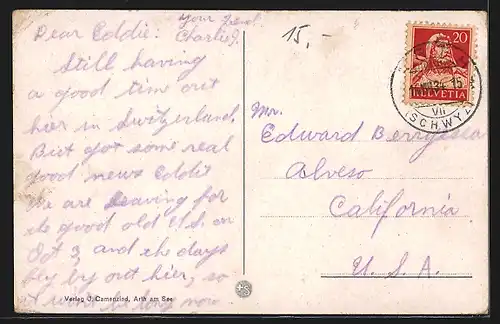 Dear Eddie:
your friend
Charlie J.
Still having
a good time out
hier in Switzerland.
But got some real
good news Eddie
We are leaving for
the good old U.S. on
Oct 3 and the days
fly by out hier, so
it wont be long now
15,-
20
HELVETIA
(SCHWYZ)
VII
Mr.
Edward
Alveso
California
U. S. A.
Verlag J. Camenzind, Arth am See